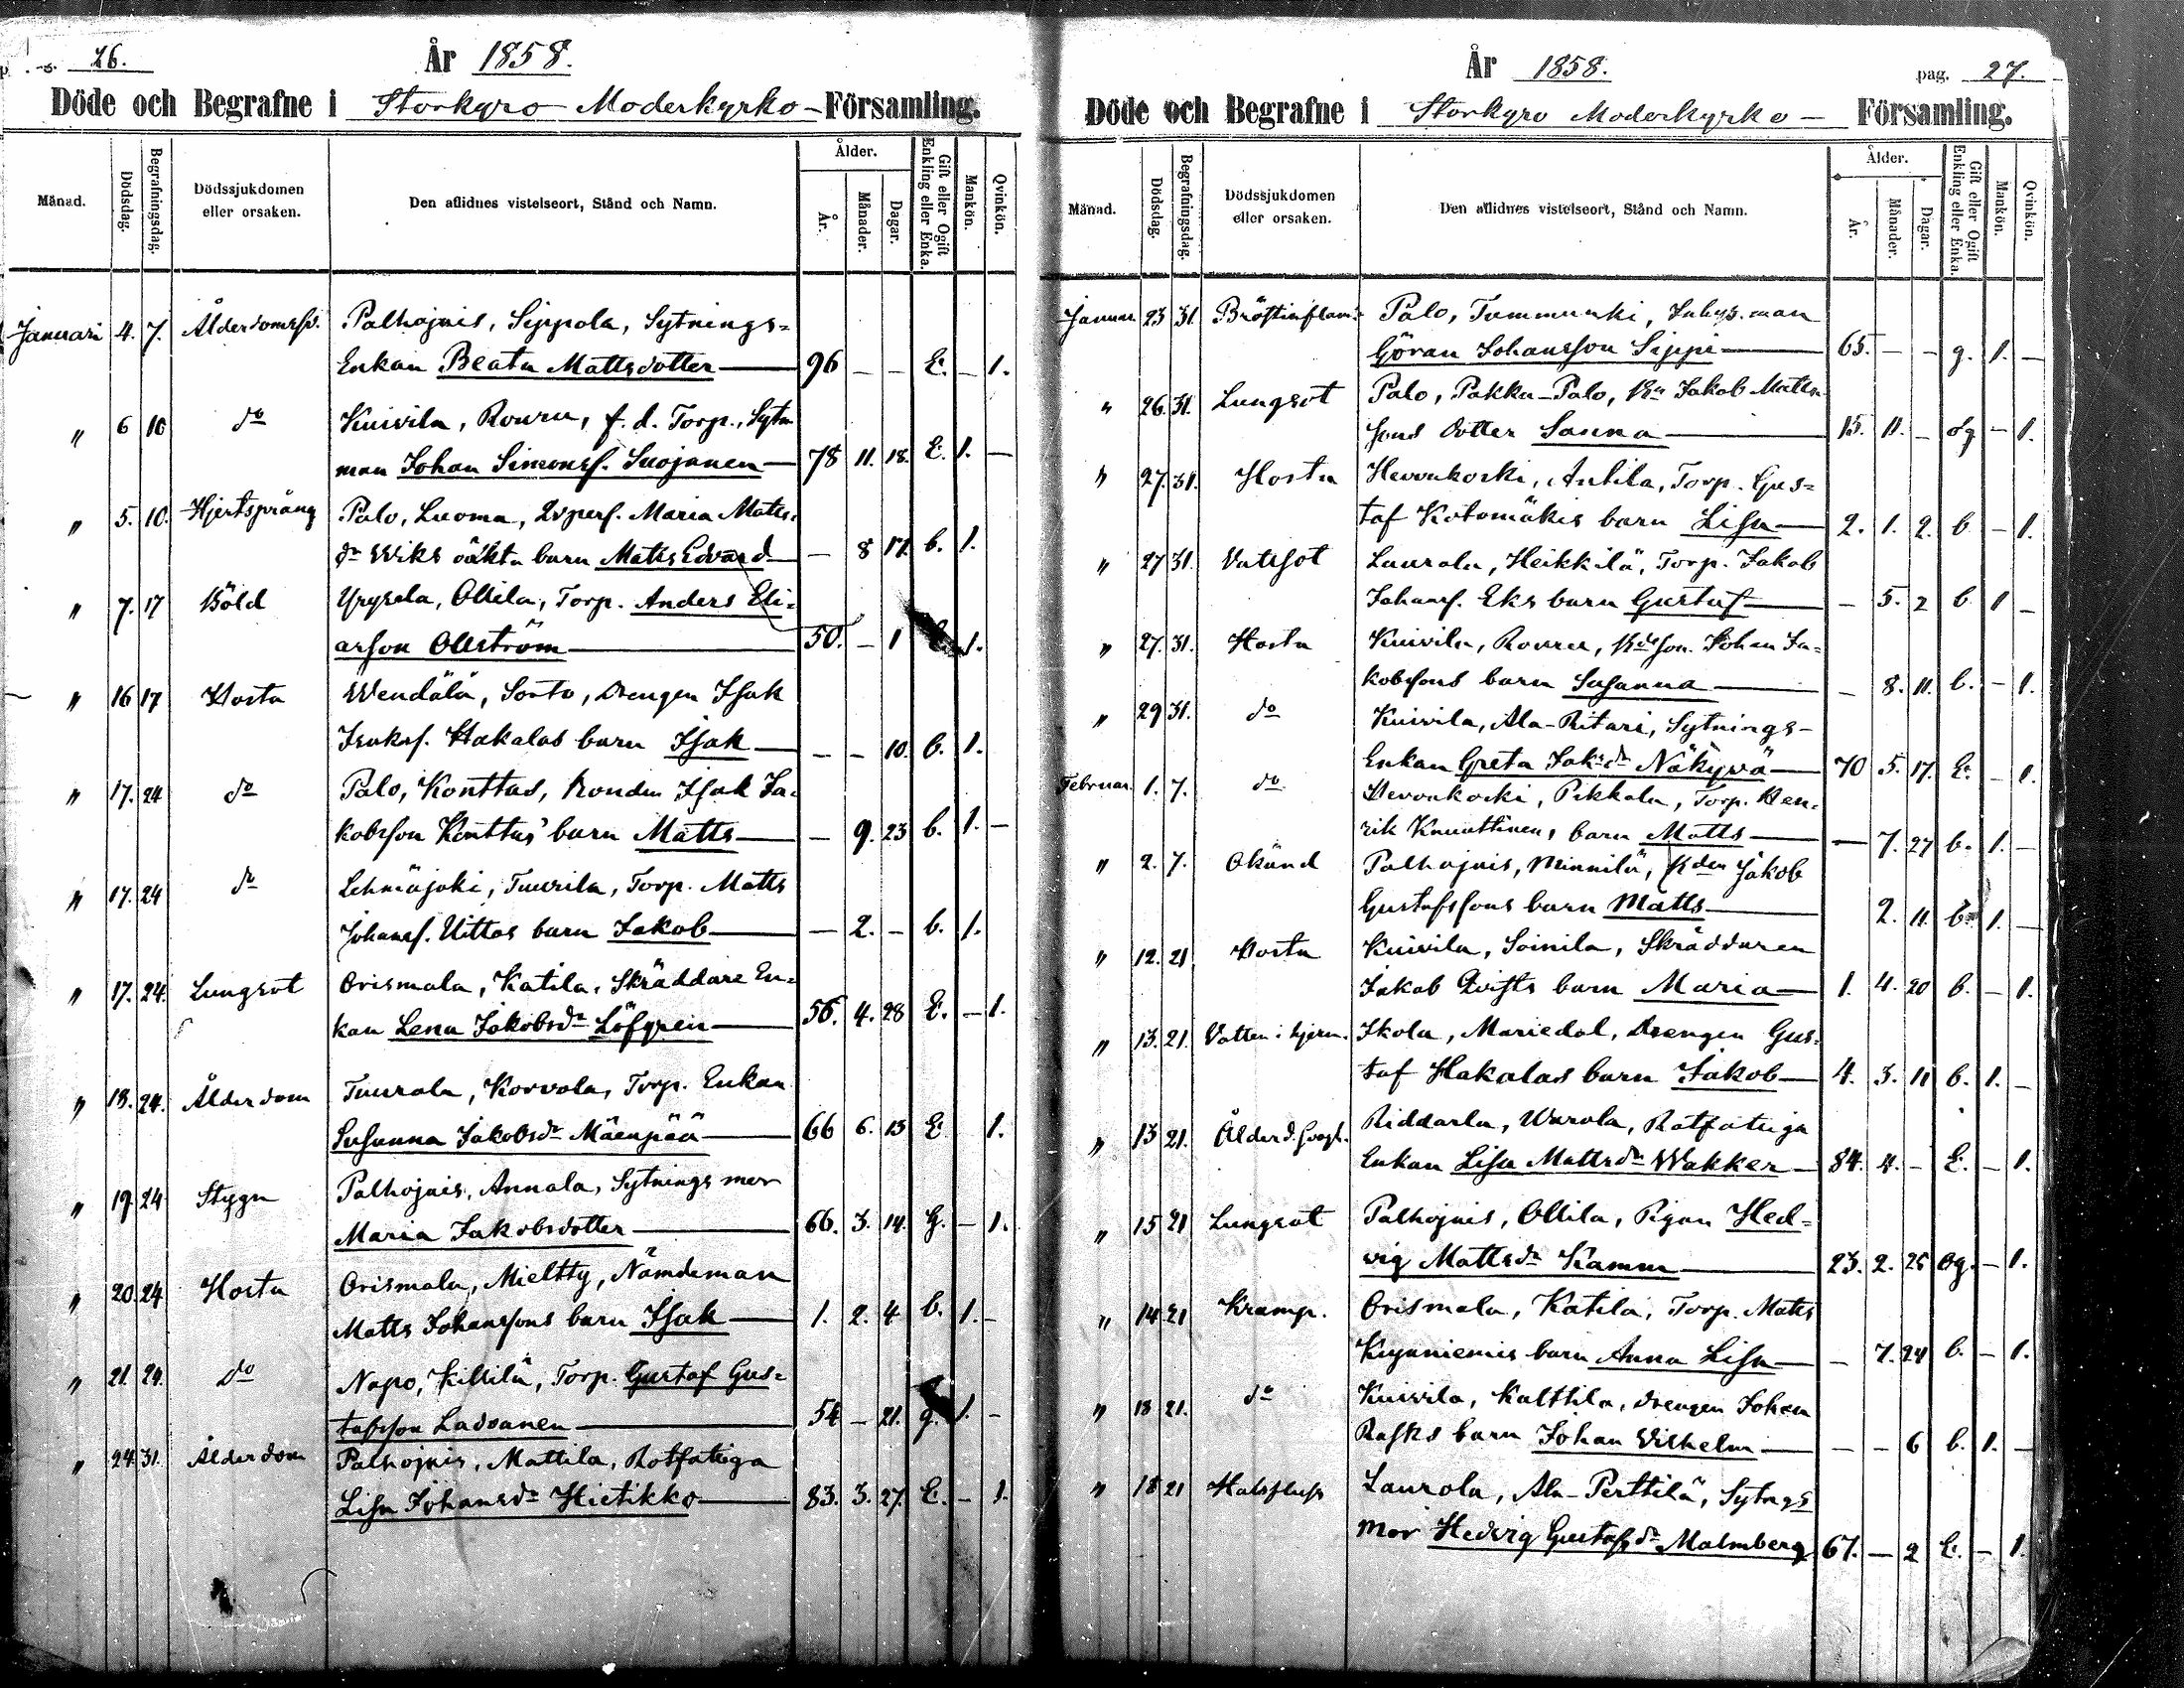 pag. 26.
År 1858.
Döde och Begrafne i Storkyro Moderkyrko-Församling.
Månad. Dödsdag. Begrafningsdag. Dödssjukdomen eller orsaken. Den aflidnes vistelseort, Stånd och Namn. Ålder. År. Månader. Dagar. Gift eller Ogift Enkling eller Enka. Mankön. Qvinkön.
Januari 4. 7. Ålderdomssv. Palhojais, Sippola, Sytnings=
Enkan Beata Mattsdotter — 96 — — E. — 1.
" 6 10 do Kuivila, Rouru, f. d. Torp., Sytn
man Johan Simonss. Suojanen — 78 11. 18. E. 1. —
" 5. 10. Hjertsprång Palo, Luoma, Qvpers. Maria Matts.
dr Wiks oäkta barn Matts Edvard — — 8 17. b. 1.
" 7. 17 Böld Yryselä, Ollila, Torp. Anders Eli=
asson Ollström — 50. — 1 1.
" 16 17 Hosta Wendälä, Sonto, Drengen Isak
Isaks. Hakalas barn Isak — — — 10. b. 1.
" 17. 24 do Palo, Konttas, Bonden Isak Ja=
kobsson Konttas barn Matts — — 9. 23 b. 1. —
" 17. 24 do Lehmäjoki, Tuurila, Torp. Matts
Johanss. Uittos barn Jakob — — 2. — b. 1.
" 17. 24. Lungsot Orismala, Katila, Skräddare En=
kan Lena Jakobsdr Löfgren — 56. 4. 28 E. — 1.
" 18. 24. Ålderdom Tuurala, Korvola, Torp. Enkan
Susanna Jakobsdr Mäenpää — 66 6. 13 E 1.
" 19. 24 Stygn Palhojais, Annala, Sytnings mor
Maria Jakobsdotter — 66. 3. 14. G. — 1.
" 20. 24 Hosta Orismala, Mieltty, Nämdeman
Matts Johanssons barn Isak — 1. 2. 4 b. 1. —
" 21. 24. do Napo, Killilä, Torp. Gustaf Gus=
tafsson Ladvanen — 54 — 21. g. 1. —
" 24. 31. Ålderdom Palhojais, Mattila, Rotfattiga
Lisa Johansdr Hietikko — 83. 3. 27. E. — 1.
År 1858.
pag. 27.
Döde och Begrafne i Storkyro Moderkyrko — Församling.
Månad. Dödsdag. Begrafningsdag. Dödssjukdomen eller orsaken. Den aflidnes vistelseort, Stånd och Namn. Ålder. År. Månader. Dagar. Gift eller Ogift Enkling eller Enka. Mankön. Qvinkön.
Januar. 23 31. Bröstinflam. Palo, Tammunki, Inhys. man
Göran Johansson Sippi — 65. — — g. 1. —
" 26. 31. Lungsot Palo, Pakka-Palo, Bn Jakob Matts
sons Dotter Sanna — 15. 11. — og — 1.
" 27. 31. Hosta Hevonkoski, Antila, Torp. Gus=
taf Kotomäkis barn Lisa — 2. 1. 2. b — 1.
" 27 31. Vatusot Laurola, Heikkilä, Torp. Jakob
Johanss. Eks barn Gustaf — — 5. 2 b 1 —
" 27. 31. Hosta Kuivila, Rouru, Bdesson. Johan Ja=
kobssons barn Susanna — — 8. 11. b. — 1.
" 29 31. do Kuivila, Ala-Ritari, Sytnings-
Enkan Greta Jaksdr Näkyvä — 70 5. 17. E. — 1.
Februar. 1. 7. do Hevonkoski, Pikkala, Torp. Hen=
rik Knuuttinens barn Matts — — 7. 27 b. 1. —
" 2. 7. Okänd Palhojais, Minnilä, Bden Jakob
Gustafssons barn Matts — 2. 11. b. 1. —
" 12. 21 Hosta Kuivila, Soinila, Skräddaren
Jakob Qvists barn Maria — 1. 4. 20 b. — 1.
" 13. 21. Vatten i hjern. Ikola, Mariedal, Drengen Gus=
taf Hakalas barn Jakob — 4. 3. 11 b. 1. —
" 13 21. Ålderd. svagh. Riddarla, Warola, Rotfattiga
Enkan Lisa Mattsdr Wakker — 84. 4. — E. — 1.
" 15 21 Lungsot Palhojais, Ollila, Pigan Hed=
vig Mattsdr Kamm — 23. 2. 25 og. — 1.
" 14 21 Kramp. Orismala, Katila, Torp. Matts
Kujaniemis barn Anna Lisa — — 7. 24 b. — 1.
" 18 21. do Kuivila, Kalttila, drengen Johan
Rasks barn Johan Vilhelm — — — 6 b. 1. —
" 18 21 Halsfluss Laurola, Ala-Perttilä, Sytngs
mor Hedvig Gustafsdr Malmberg 67. — 2 E. — 1.